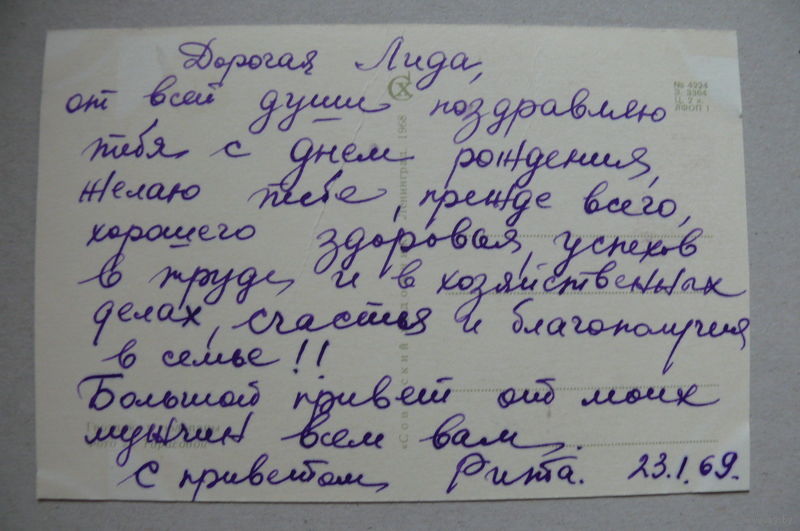 Дорогая Лида,
от всей души поздравляю
тебя с днем рождения,
желаю тебе, прежде всего,
хорошего здоровья, успехов
в труде и в хозяйственных
делах, счастья и благополучия
в семье!!
Большой привет от моих
мужчин всем вам.
С приветом Рита. 23.1.69.
№ 4224
З. 3364
Ц. 2 к.
ЛФОП 1
Ленинград 1968
«Советский